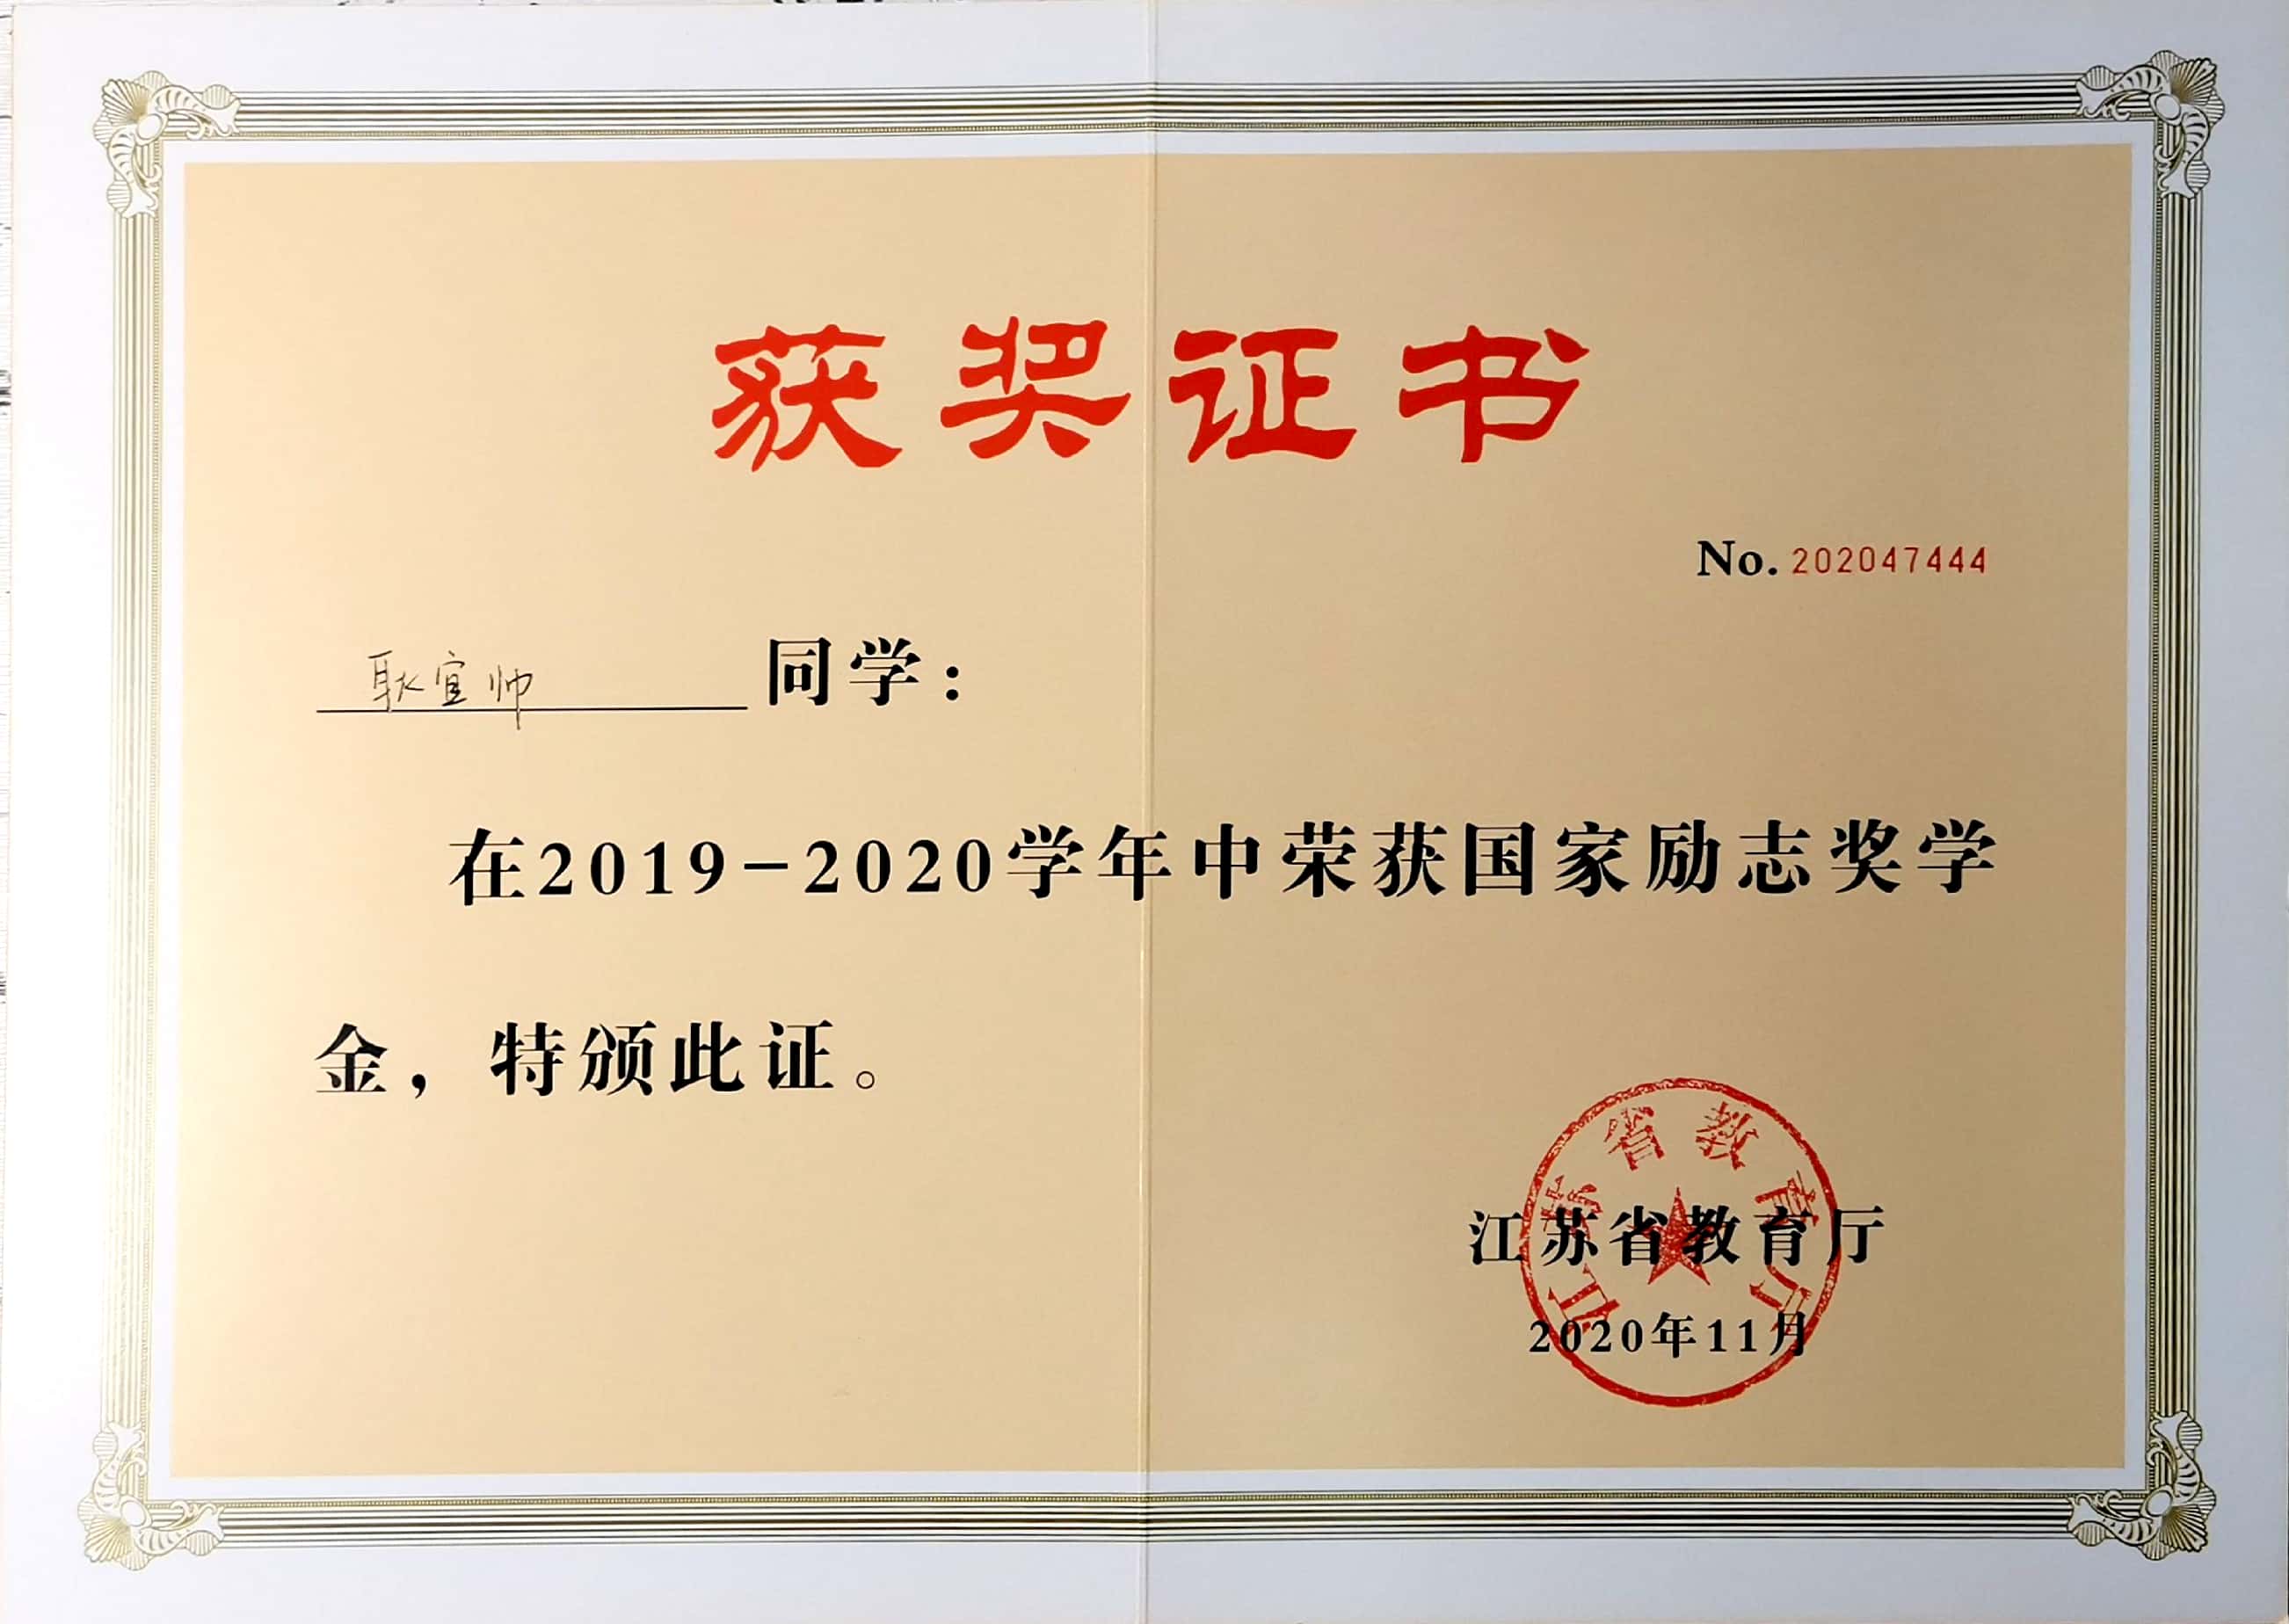 获奖证书
No. 202047444
耿宜帅 同学：
在2019-2020学年中荣获国家励志奖学
金，特颁此证。
江苏省教育厅
江苏省教育厅
2020年11月